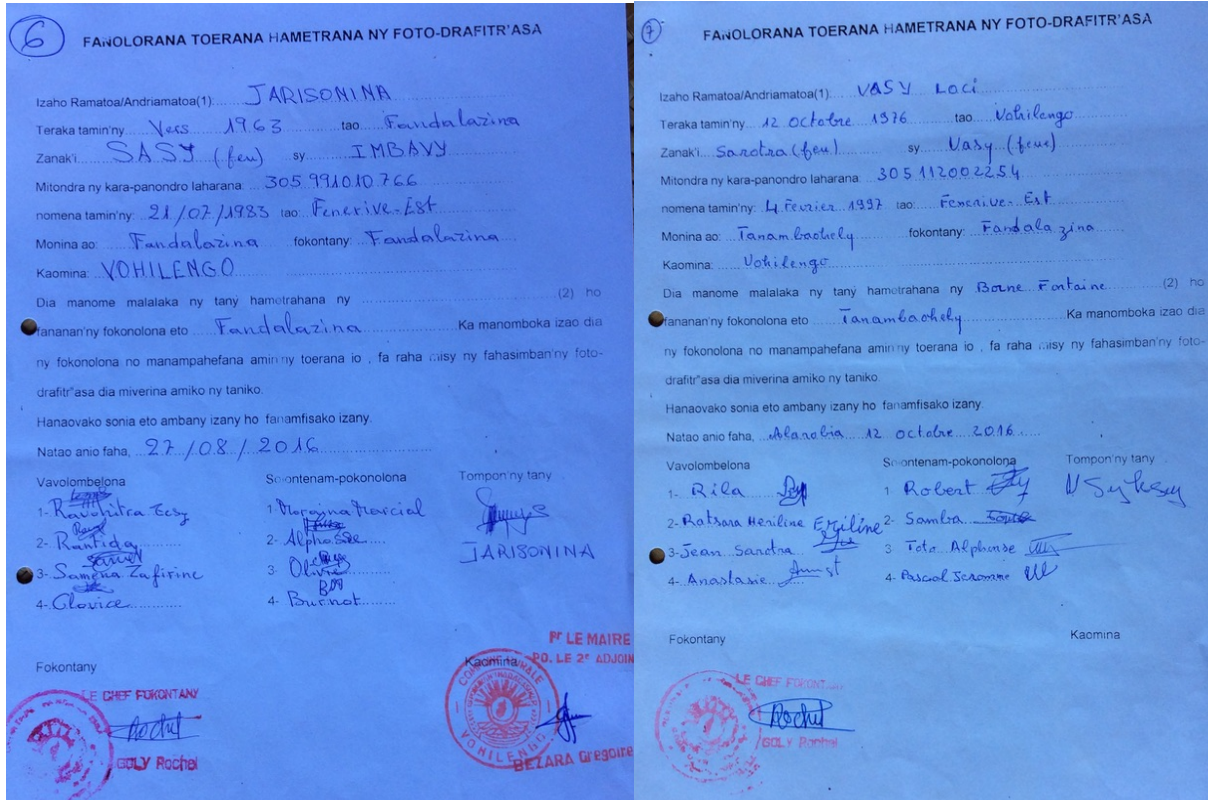 6
FANOLORANA TOERANA HAMETRANA NY FOTO-DRAFITR'ASA
Izaho Ramatoa/Andriamatoa(1): JARISONINA
Teraka tamin'ny Vers 1963 tao Fandalazina
Zanak'i SASY (feu) sy IMBAVY
Mitondra ny kara-panondro laharana: 305 991010 766
nomena tamin'ny: 21/07/1983 tao: Fenerive-Est
Monina ao: Fandalazina fokontany: Fandalazina
Kaomina: VOHILENGO
Dia manome malalaka ny tany hametrahana ny (2) ho
fananan'ny fokonolona eto Fandalazina Ka manomboka izao dia
ny fokonolona no manampahefana amin'ny toerana io , fa raha misy ny fahasimban'ny foto-
drafitr"asa dia miverina amiko ny taniko.
Hanaovako sonia eto ambany izany ho fanamfisako izany.
Natao anio faha, 27/08/2016
Vavolombelona Solontenam-pokonolona Tompon'ny tany
1- Ravohitra 1- Marcial
2- Rantida 2- Alphonse
JARISONINA
3- Samena Zafirine 3 Olivie
4- Clovice 4- Burnot
Fokontany Kaomina
Pr LE MAIRE
PO. LE 2e ADJOIN
LE CHEF FOKONTANY
Rochel
GOLY Rochel
VOHILENGO
BEZARA Gregoire
7
FANOLORANA TOERANA HAMETRANA NY FOTO-DRAFITR'ASA
Izaho Ramatoa/Andriamatoa(1): VASY LOCI
Teraka tamin'ny 12 Octobre 1976 tao Vohilengo
Zanak'i Sarotra (feu) sy Vasy (feue)
Mitondra ny kara-panondro laharana: 305 112002254
nomena tamin'ny: 4 Fevrier 1997 tao: Fenerive-Est
Monina ao: Tanambaohely fokontany: Fandalazina
Kaomina: Vohilengo
Dia manome malalaka ny tany hametrahana ny Borne Fontaine (2) ho
fananan'ny fokonolona eto Tanambaohely Ka manomboka izao dia
ny fokonolona no manampahefana amin'ny toerana io , fa raha misy ny fahasimban'ny foto-
drafitr"asa dia miverina amiko ny taniko.
Hanaovako sonia eto ambany izany ho fanamfisako izany.
Natao anio faha, Alarobia 12 octobre 2016
Vavolombelona Solontenam-pokonolona Tompon'ny tany
1- Rila 1 Robert
2- Ratsara Heriline Eriline 2- Samba
3- Jean Sarotra 3 Toto Alphonse
4- Anastasie 4- Pascal Jeromme
Fokontany Kaomina
LE CHEF FOKONTANY
Rochel
GOLY Rochel